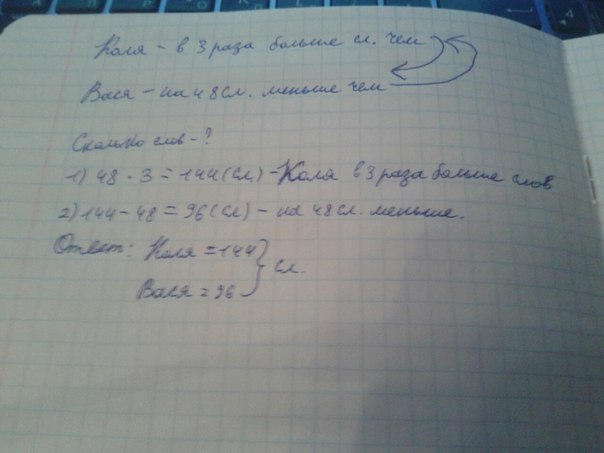 Коля - в 3 раза больше сл. чем
Вася - на 48 сл. меньше чем
Сколько слов - ?
1) 48 · 3 = 144 (сл) - Коля в 3 раза больше слов
2) 144 - 48 = 96 (сл) - на 48 сл. меньше.
Ответ: Коля = 144 } сл.
Вася = 96